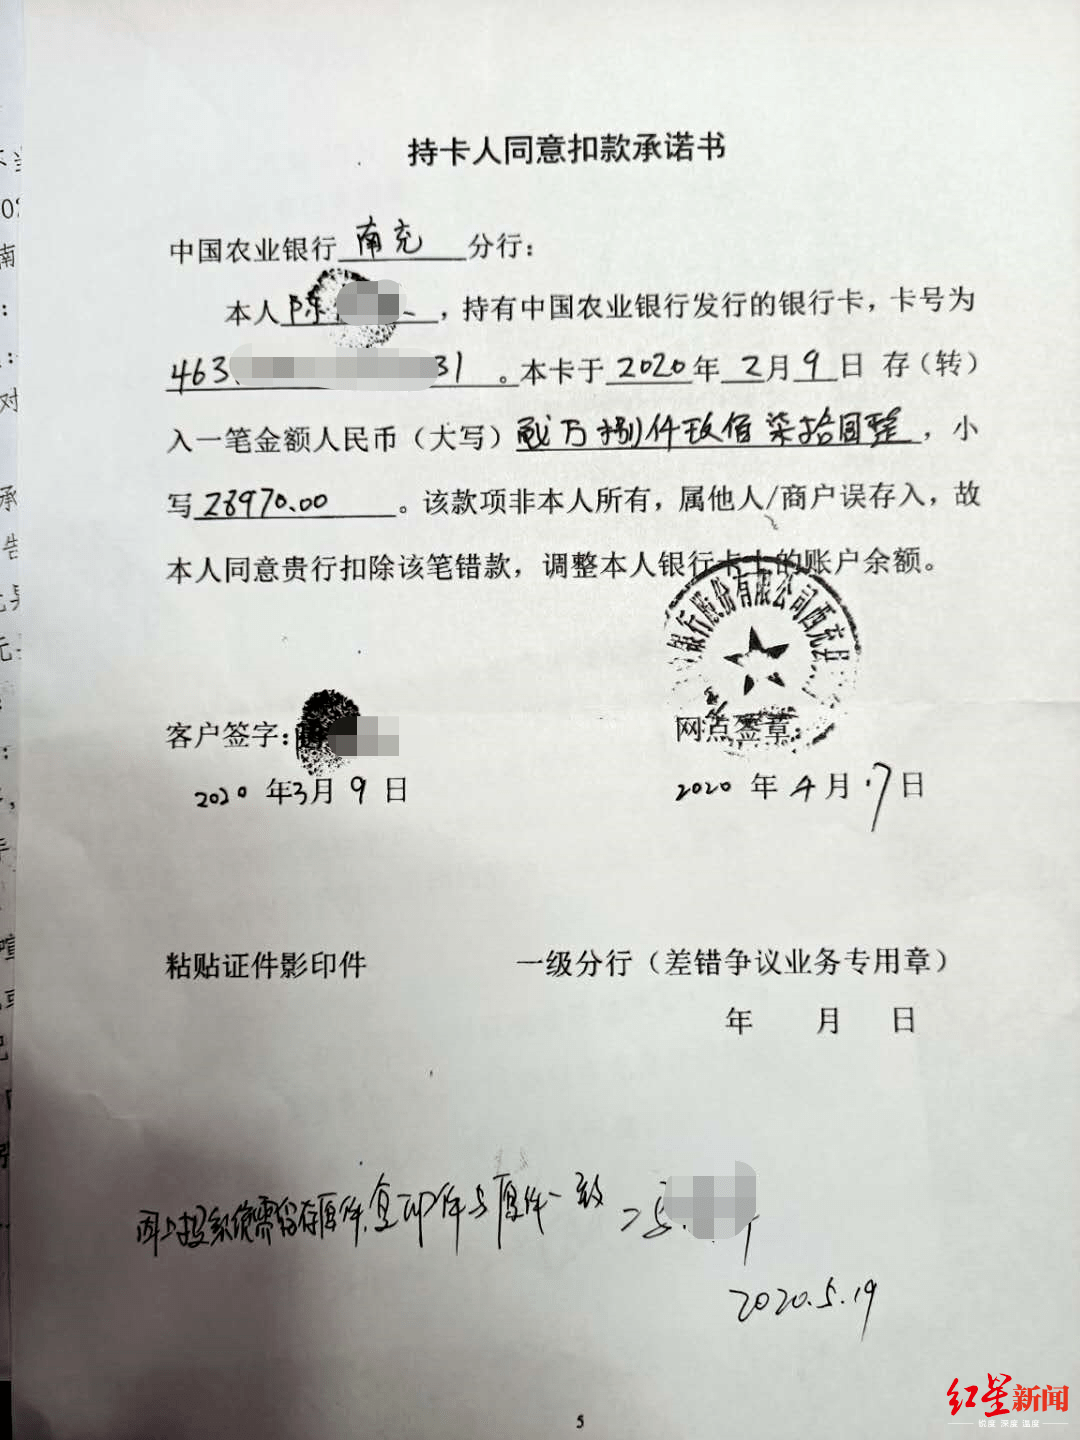 持卡人同意扣款承诺书
中国农业银行 南充 分行：
本人 陈 ，持有中国农业银行发行的银行卡，卡号为
463 31 。本卡于 2020 年 2 月 9 日 存（转）
入一笔金额人民币（大写） 贰万捌仟玖佰柒拾圆整 ，小
写 28970.00 。该款项非本人所有，属他人/商户误存入，故
本人同意贵行扣除该笔错款，调整本人银行卡上的账户余额。
银行股份有限公司西充县
客户签字： 网点签章：
2020 年 3 月 9 日 2020 年 4 月 17 日
粘贴证件影印件 一级分行（差错争议业务专用章）
年 月 日
因上报系统需留存原件，复印件与原件一致
2020.5.19
红星新闻
锐度 深度 温度
5